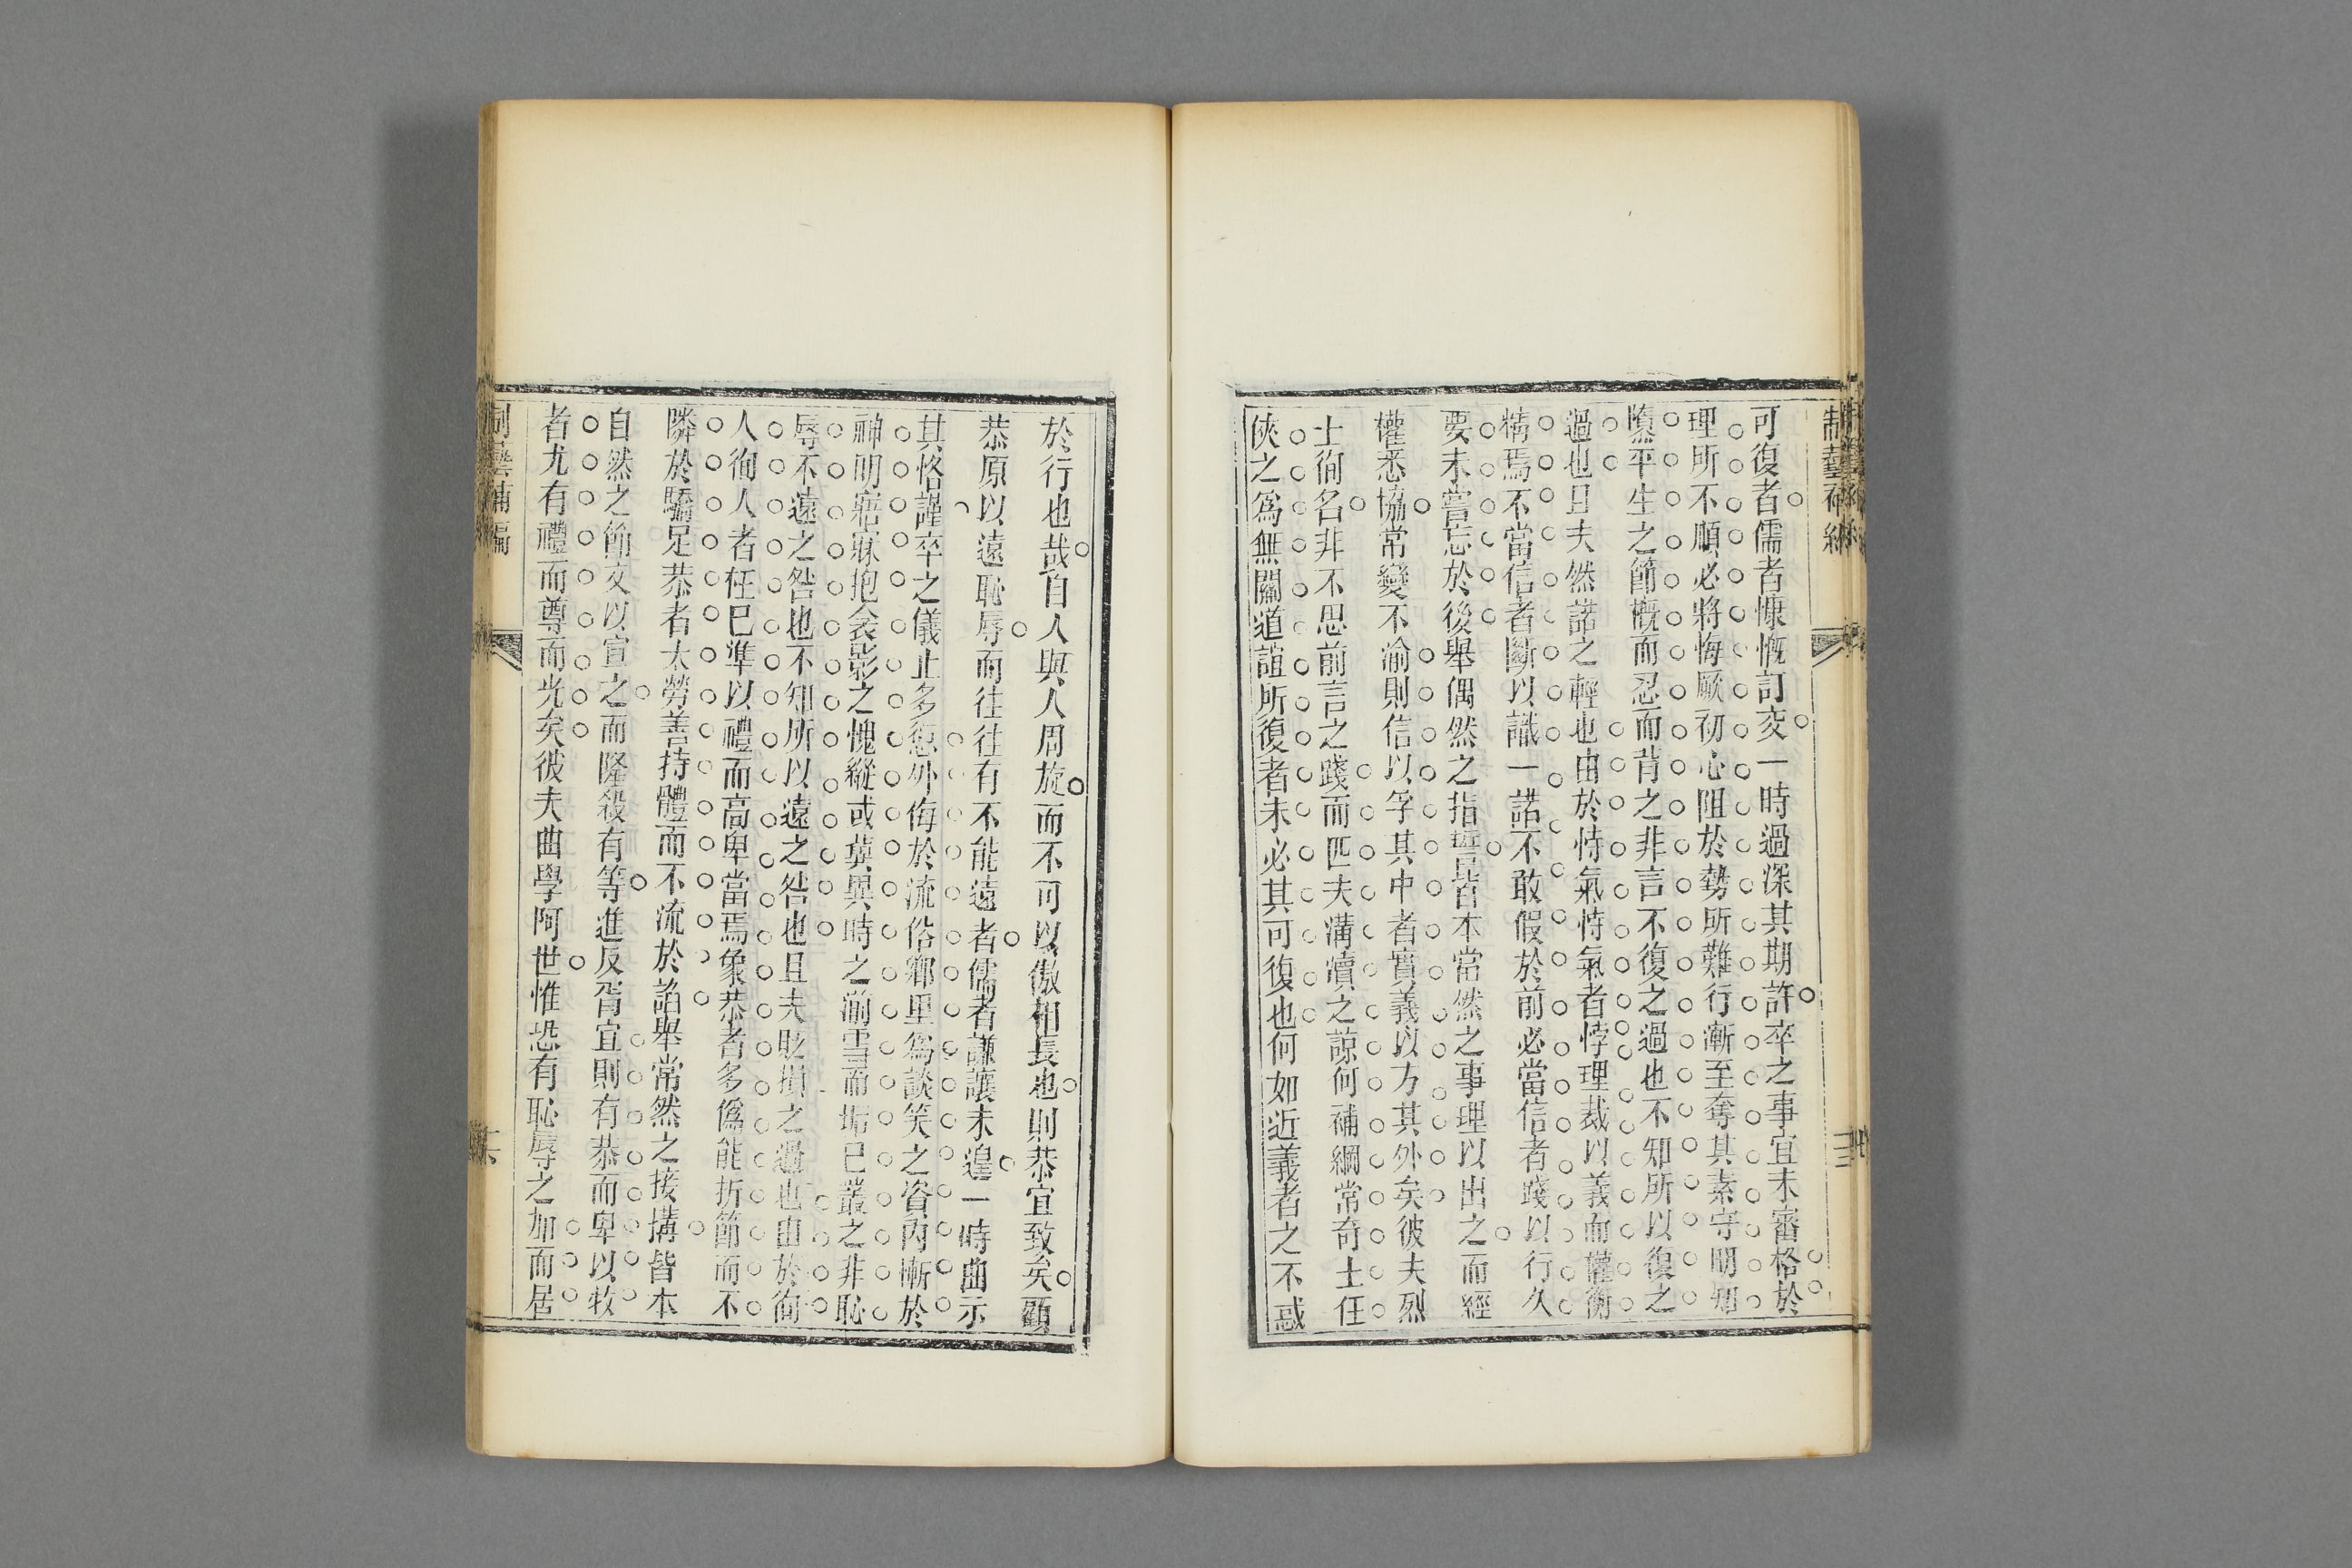 可復者儒者慷慨訂交一時過深其期許卒之事宜未審格於
理所不順必將悔厥初心阻於勢所難行漸至奪其素守明知
隳平生之節概而忍而背之非言不復之過也不知所以復之
過也且夫然諾之輕也由於恃氣恃氣者悖理裁以義而權衡
精焉不當信者斷以識一諾不敢假於前必當信者踐以行久
要未嘗忘於後舉偶然之指誓皆本當然之事理以出之而經
權悉協常變不渝則信以孚其中者實義以方其外矣彼夫烈
士徇名非不思前言之踐而匹夫溝瀆之諒何補綱常奇士任
俠之爲無關道誼所復者未必其可復也何如近義者之不惑
於行也哉自人與人周旋而不可以傲相長也則恭宜致矣顧
恭原以遠恥辱而往往有不能遠者儒者謙讓未遑一時曲示
其恪謹卒之儀止多愆外侮於流俗鄉里爲談笑之資內慚於
神明寤寐抱衾影之愧縱或冀異時之湔雪而垢已叢之非恥
辱不遠之咎也不知所以遠之咎也且夫貶損之過也由於徇
人徇人者枉已準以禮而高卑當焉象恭者多僞能折節而不
隣於驕足恭者太勞善持體而不流於諂舉常然之接搆皆本
自然之節文以宣之而隆殺有等進反胥宜則有恭而卑以牧
者尤有禮而尊而光矣彼夫曲學阿世惟恐有恥辱之加而居
制藝補編